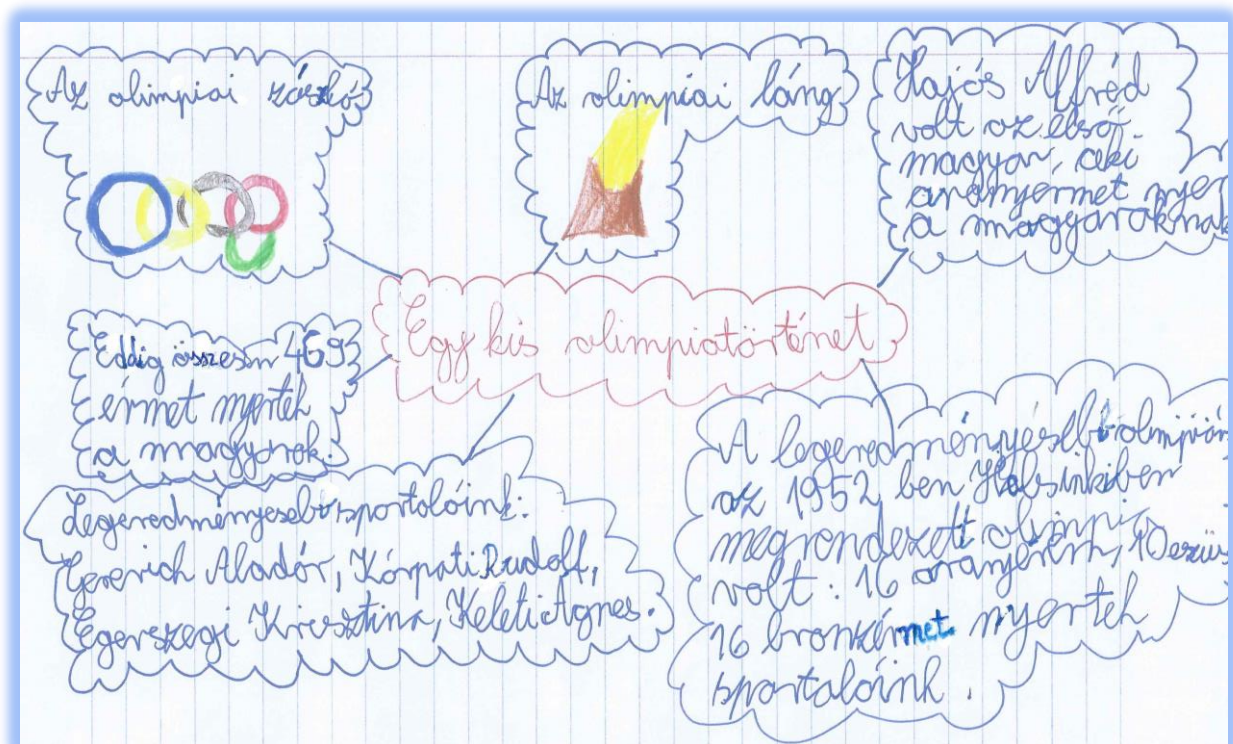 Az olimpiai zászló
Az olimpiai láng
Hajós Alfréd
volt az első
magyar, aki
aranyermet nyer
a magyaroknak
Egy kis olimpiatörténet
Eddig összesen 469
érmet nyertek
a magyarok.
Legeredményesebb sportolóink:
Gerevich Aladár, Kárpáti Rudolf,
Egerszegi Krisztina, Keleti Ágnes.
A legeredményesebb olimpián
az 1952 ben Helsinkiben
megrendezett olimpia
volt: 16 aranyérm, 10 ezüs
16 bronzérmet nyertek
sportolóink.